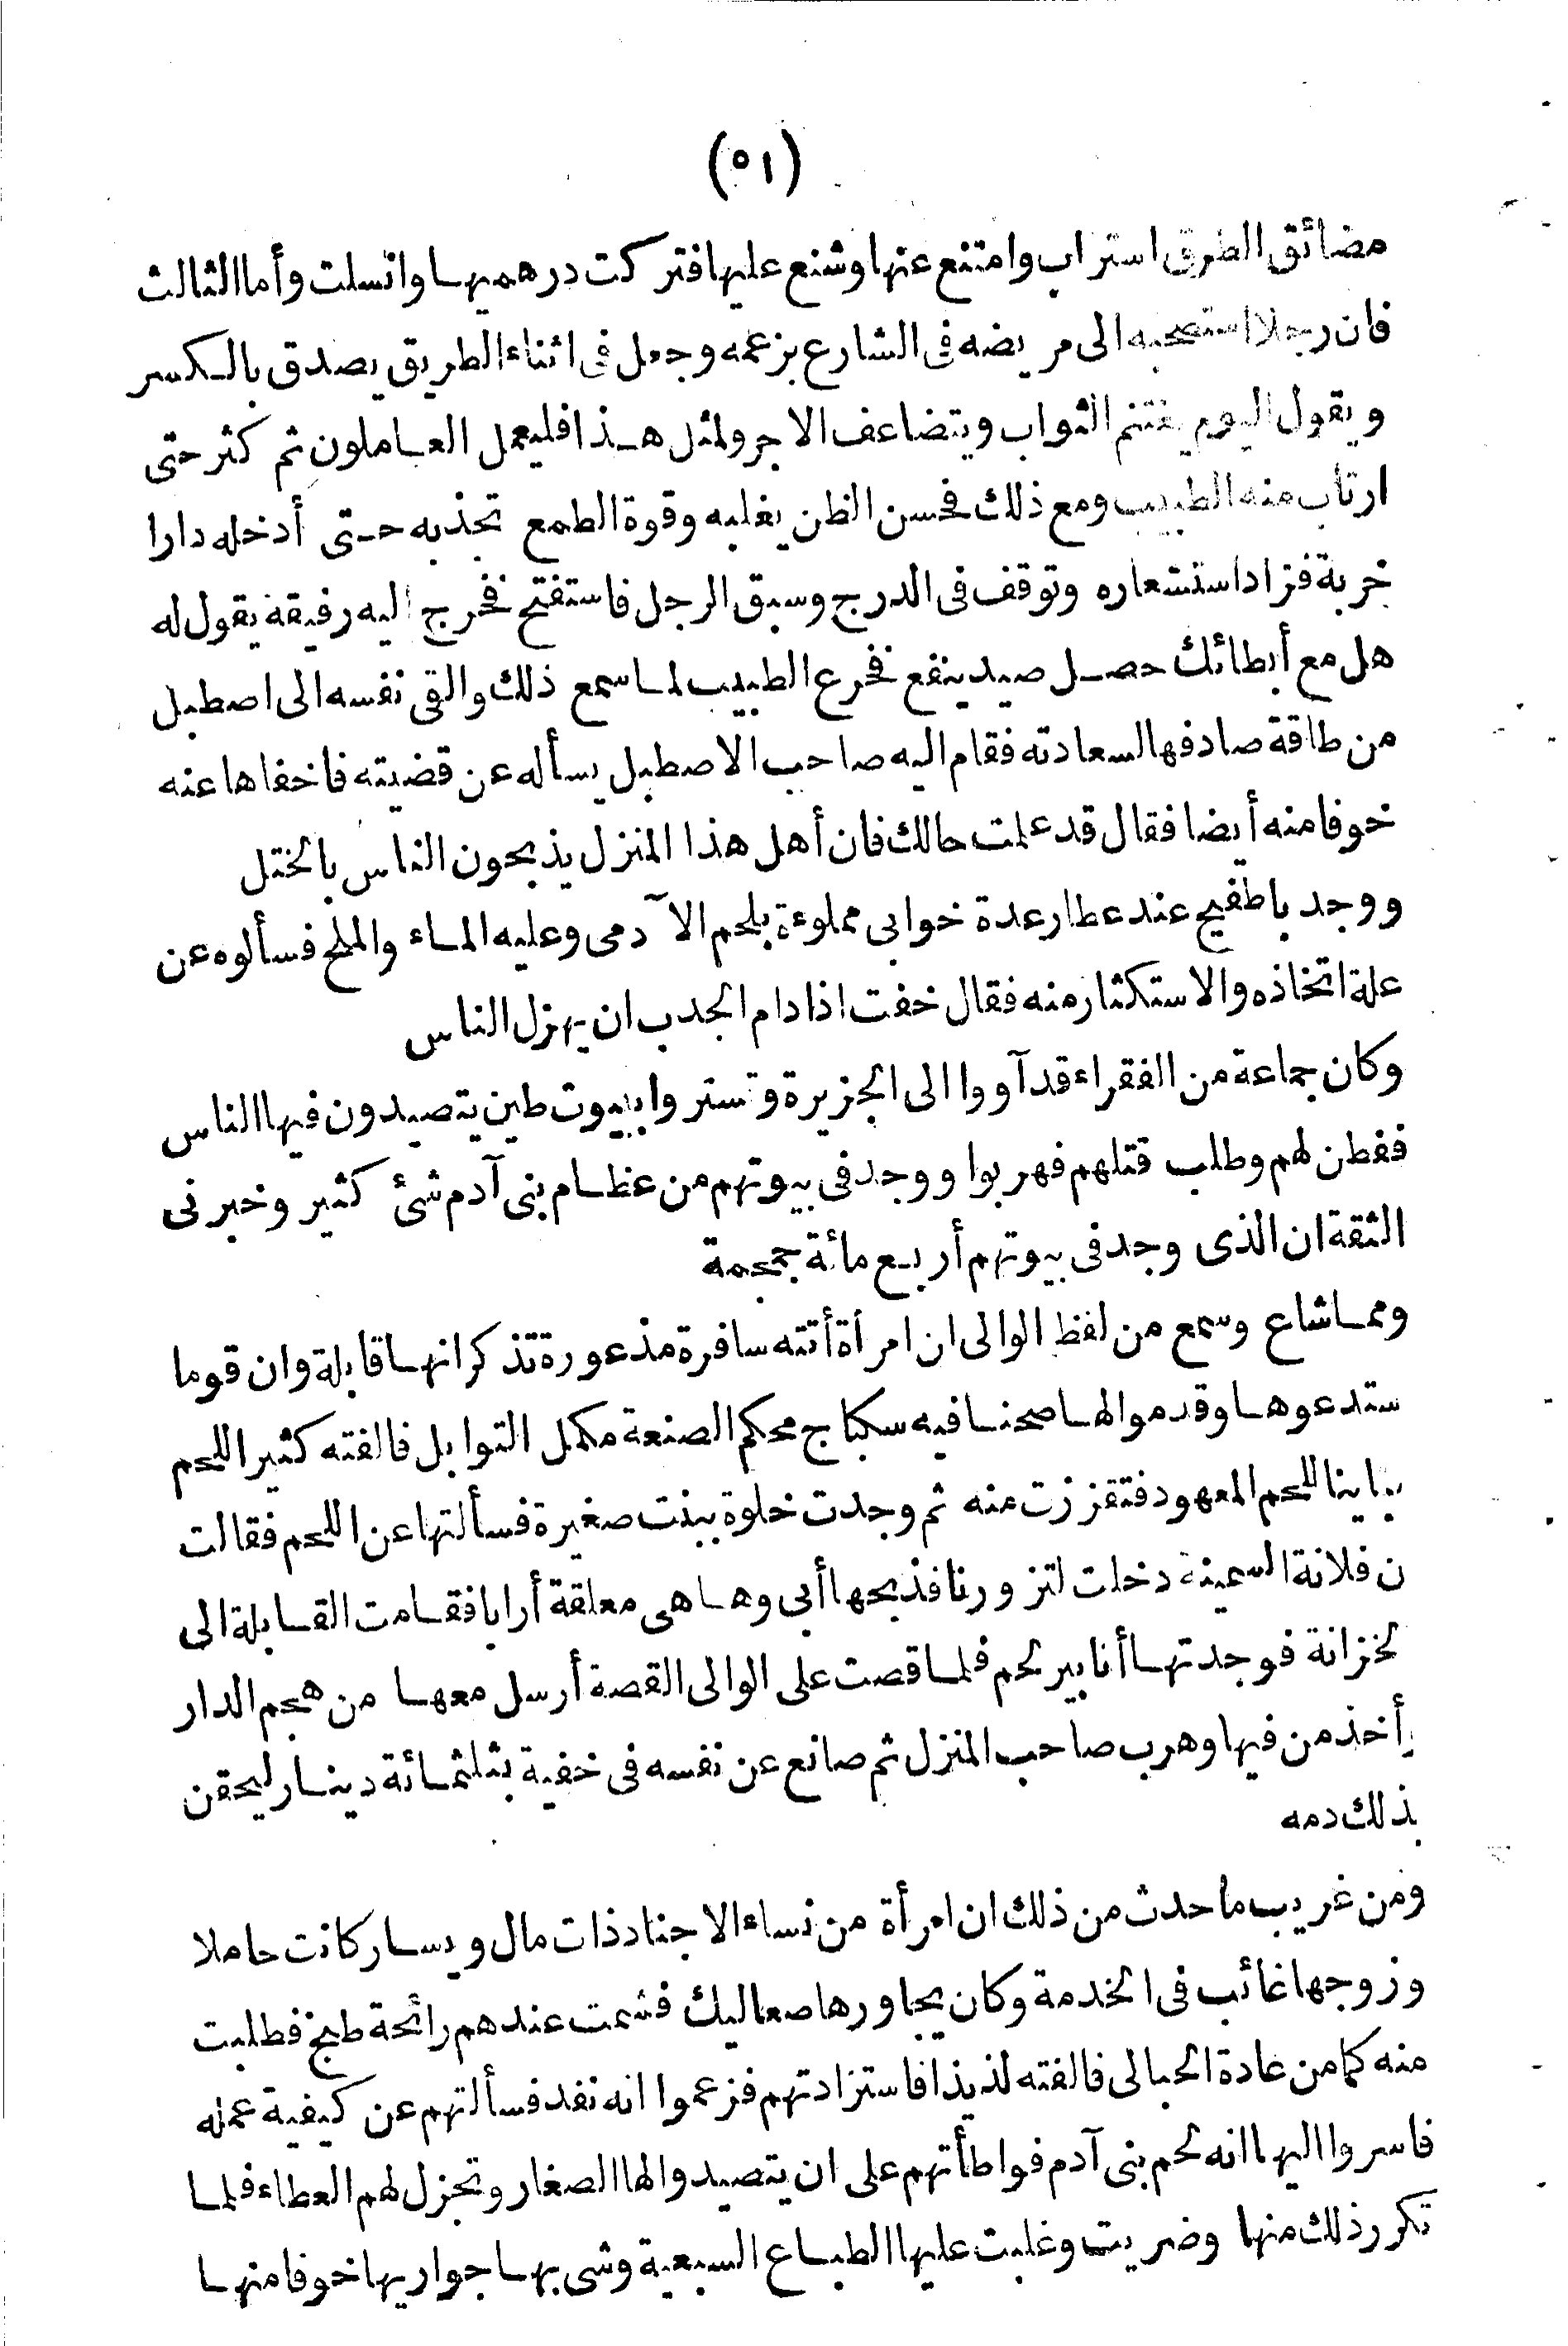 (٥١)
مضائق الطرق استراب وامتنع عنها وشنع عليها فتركت درهميها وانسلت وأما الثالث
فان رجلا استصحبه الى مريضه فى الشارع بزعمه وجعل فى اثناء الطريق يصدق بالكسر
ويقول اليوم يغتنم الثواب ويتضاعف الاجر ولمثل هذا فليعمل العاملون ثم كثر حتى
ارتاب منه الطبيب ومع ذلك فحسن الظن يغلبه وقوة الطمع تجذبه حتى أدخله دارا
خربة فزاد استشعاره وتوقف فى الدرج وسبق الرجل فاستفتح فخرج اليه رفيقه يقول له
هل مع أبطائك حصل صيد ينفع فخرع الطبيب لما سمع ذلك والقى نفسه الى اصطبل
من طاقة صادفها السعادته فقام اليه صاحب الاصطبل يسأله عن قضيته فاخفاها عنه
خوفا منه أيضا فقال قد علمت حالك فان أهل هذا المنزل يذبحون الناس بالختل
ووجد باطفيح عند عطار عدة خوابى مملوءة بلحم الآدمى وعليه الماء والملح فسألوه عن
علة اتخاذه والاستكثار منه فقال خفت اذا دام الجدب ان يهزل الناس
وكان جماعة من الفقراء قد آووا الى الجزيرة وتستروا ببيوت طين يتصيدون فيها الناس
ففطن لهم وطلب قتلهم فهربوا ووجد فى بيوتهم من عظام بنى آدم شئ كثير وخبرنى
الثقة ان الذى وجد فى بيوتهم أربع مائة جمجمة
ومما شاع وسمع من لفظ الوالى ان امرأة أتته سافرة مذعورة تذكر انها قابلة وان قوما
ستدعوها وقدموا لها صحنا فيه سكباج محكم الصنعة مكمل التوابل فالفته كثير اللحم
باينا للحم المعهود فتقززت منه ثم وجدت خلوة ببنت صغيرة فسألتها عن اللحم فقالت
ن فلانة السمينة دخلت لتزورنا فذبحها أبى وها هى معلقة أرابا فقامت القابلة الى
لخزانة فوجدتها أنابير لحم فلما قصت على الوالى القصة أرسل معها من هجم الدار
أخذ من فيها وهرب صاحب المنزل ثم صانع عن نفسه فى خفية بثلثمائة دينار ليحقن
بذلك دمه
ومن غريب ما حدث من ذلك ان امرأة من نساء الاجناد ذات مال ويسار كانت حاملا
وزوجها غائب فى الخدمة وكان يجاورها صعاليك فشمت عندهم رائحة طبخ فطلبت
منه كما من عادة الحبالى فالفته لذيذا فاستزادتهم فزعموا انه نفد فسألتهم عن كيفية عمله
فاسروا اليها انه لحم بنى آدم فواطأتهم على ان يتصيدوا لها الصغار وتجزل لهم العطاء فلما
تكرر ذلك منها وضريت وغلبت عليها الطباع السبعية وشى بها جواريها خوفا منها